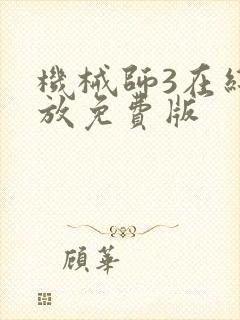 機械師3在線
放免費版
顧華